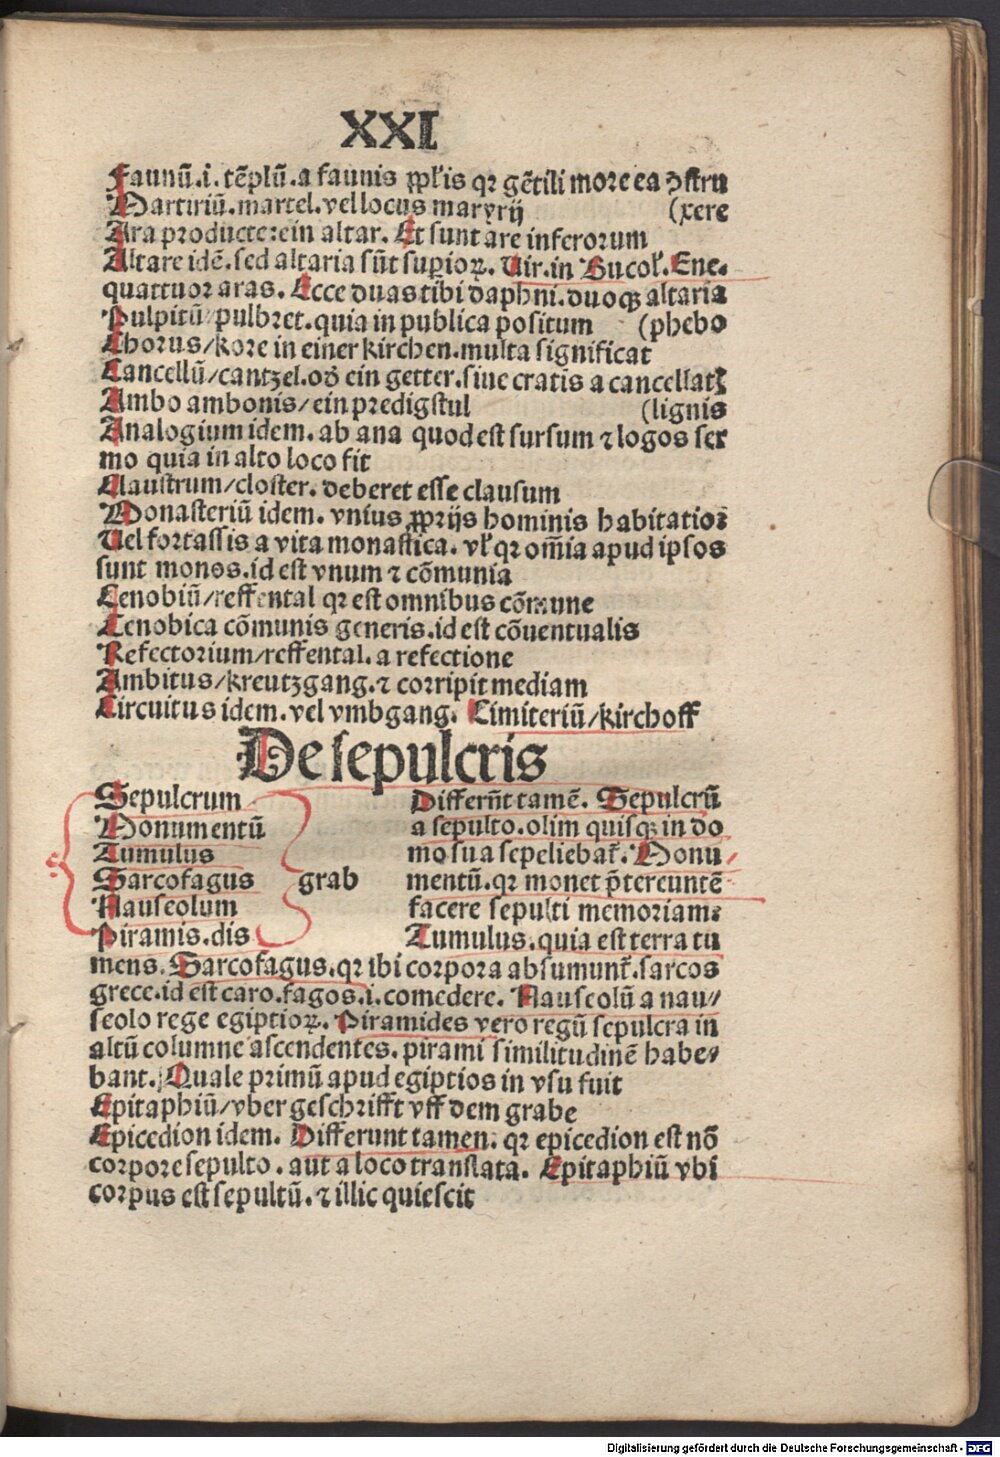 XXI
Faunū.i.tēplū.a faunis ꝓpl'is qꝛ gētili more ea ꝯstru
Martiriū.martel.vel locus marṫyrij (xere
Ara producte:ein altar. Et sunt are inferorum
Altare idē.sed altaria sūt superioꝝ. Uir.in Bucol'.Ene.
quattuor aras. Ecce duas tibi daphni.duoqꝫ altaria
Pulpitū/pulbret.quia in publica positum (phebo
Chorus/kore in einer kirchen.multa significat
Cancellū/cantzel.od' ein getter.siue cratis a cancellatꝭ
Ambo ambonis/ein predigstul (lignis
Analogium idem.ab ana quod est sursum ⁊ logos ser
mo quia in alto loco fit
Claustrum/closter. deberet esse clausum
Monasteriū idem. vnius ꝓprijs hominis habitatio:
Uel fortassis a vita monastica. vl' qꝛ om̄ia apud ipsos
sunt monos.id est vnum ⁊ cōmunia
Cenobiū/reffental qꝛ est omnibus cōmune
Cenobica cōmunis generis.id est cōuentualis
Refectorium/reffental.a refectione
Ambitus/kreutzgang.⁊ corripit mediam
Circuitus idem.vel vmbgang. Cimiteriū/kirchoff
De sepulcris
Sepulcrum
Monumentū
Tumulus
Sarcofagus grab
Nauseolum
Piramis.dis
Differūt tamē. Sepulcrū
a sepulto.olim quisqꝫ in do
mo sua sepeliebat̃. Monu/
mentū.qꝛ monet p̄tereuntē
facere sepulti memoriam:
Tumulus.quia est terra tu
mens. Sarcofagus.qꝛ ibi corpora absumunt̃.sarcos
grece.id est caro.fagos.i.comedere. Nauseolū a nau/
seolo rege egiptioꝝ. Piramides vero regū sepulcra in
altū columne ascendentes.pirami similitudinē habe/
bant. Quale primū apud egiptios in vsu fuit
Epitaphiū/vber geschrifft vff dem grabe
Epicedion idem. Differunt tamen. qꝛ epicedion est nō
corpore sepulto.aut a loco translata. Epitaphiū vbi
corpus est sepultū.⁊ illic quiescit
Digitalisierung gefördert durch die Deutsche Forschungsgemeinschaft - DFG